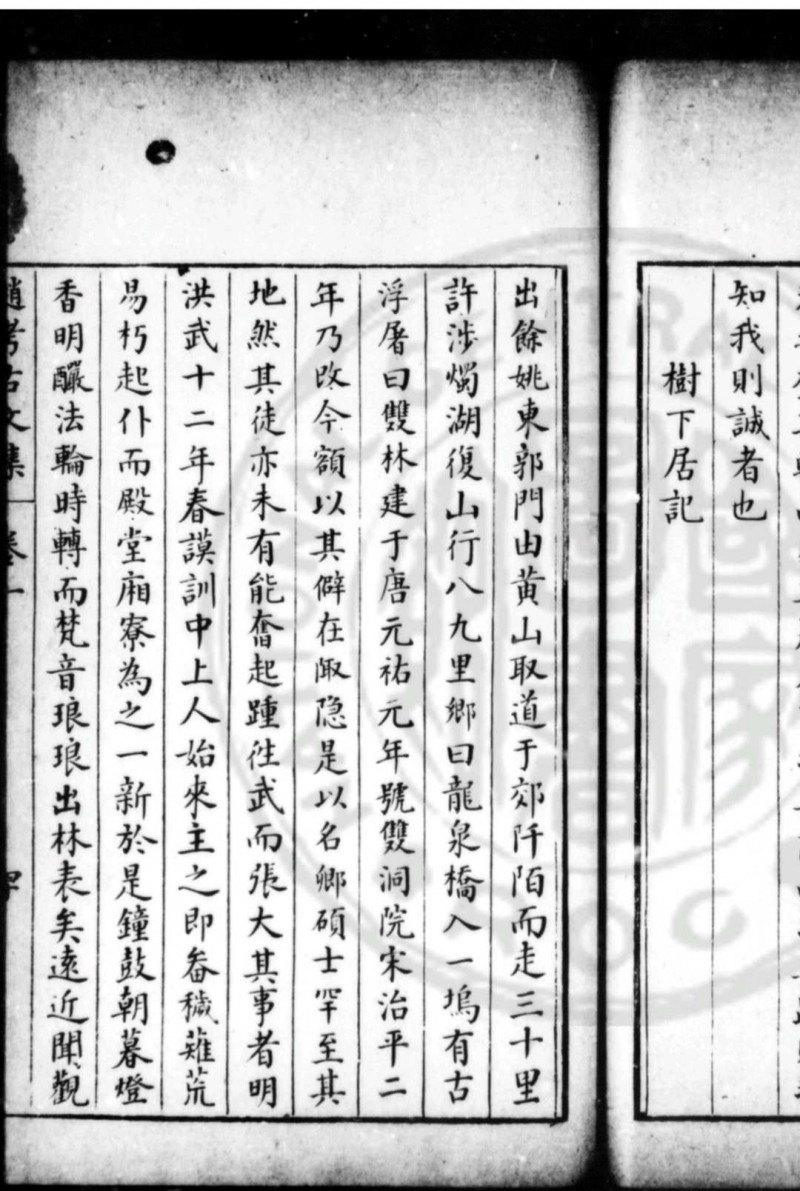 知我則誠者也
樹下居記
出餘姚東郭門由黄山取道于郊阡陌而走三十里
許涉燭湖復山行八九里鄉曰龍泉橋入一塢有古
浮屠曰雙林建于唐元祐元年號雙洞院宋治平二
年乃改今額以其僻在陬隐是以名卿碩士罕至其
地然其徒亦未有能奮起踵徃武而張大其事者明
洪武十二年春謨訓中上人始來主之即畚穢薙荒
易朽起仆而殿堂廂寮為之一新於是鐘鼓朝暮燈
香明釅法輪時轉而梵音琅琅出林表矣遠近聞觀
趙考古文集 卷一